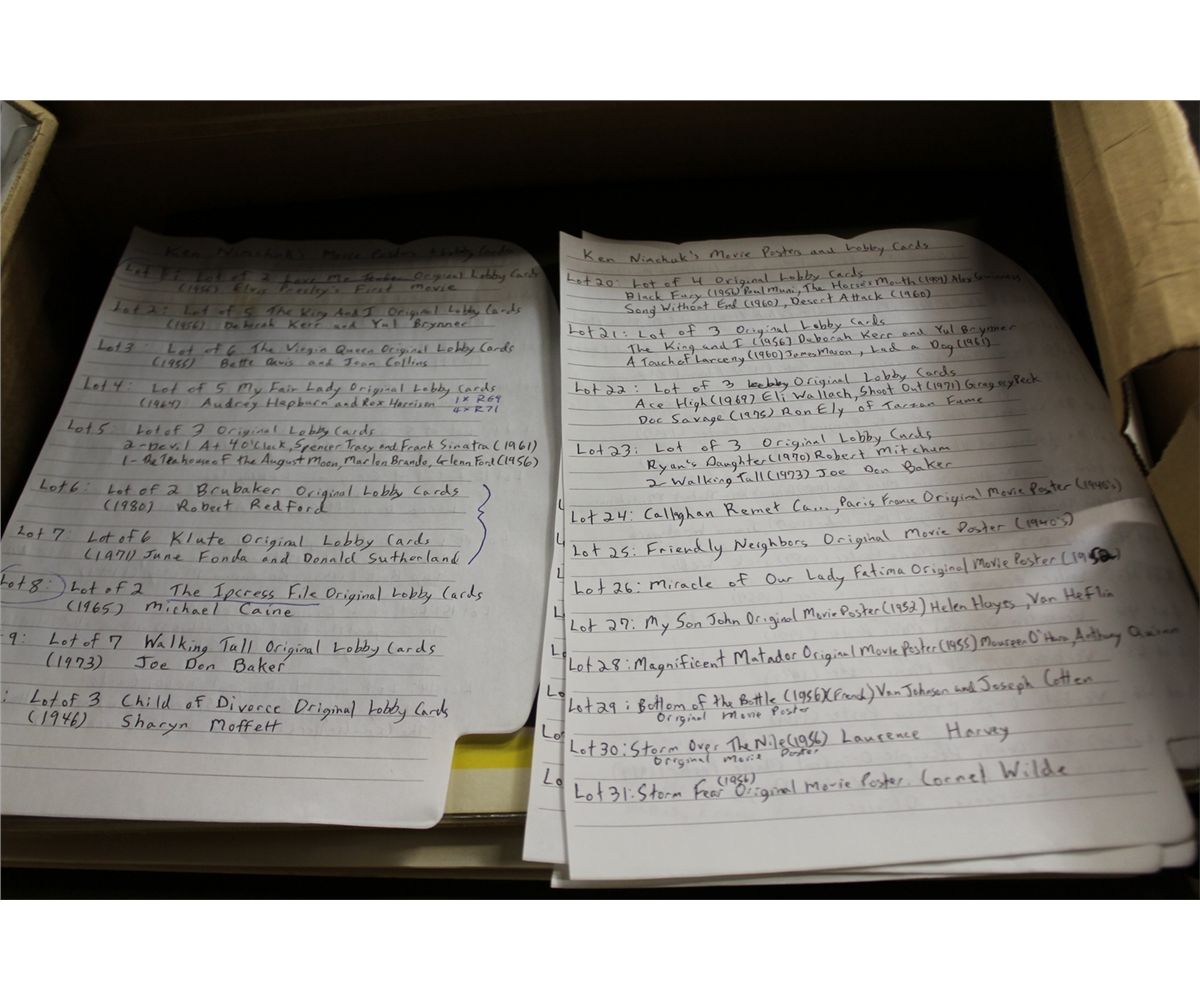 Ken Ninchuk's Movie Posters Lobby Cards
Lot 1: Lot of 2 Love Me Tender Original Lobby Cards
(1956) Elvis Presley's First Movie
Lot 2: Lot of 5 The King And I Original Lobby Cards
(1956) Deborah Kerr and Yul Brynner
Lot 3 Lot of 6 The Virgin Queen Original Lobby Cards
(1955) Bette Davis and Joan Collins
Lot 4: Lot of 5 My Fair Lady Original Lobby Cards
(1964) Audrey Hepburn and Rex Harrison 1x R69
4x R71
Lot 5: Lot of 3 Original Lobby Cards
2-Devil At 4 O'Clock, Spencer Tracy and Frank Sinatra (1961)
1-The Teahouse of the August Moon, Marlon Brando, Glenn Ford (1956)
Lot 6: Lot of 2 Brubaker Original Lobby Cards
(1980) Robert Redford
Lot 7: Lot of 6 Klute Original Lobby Cards
(1971) Jane Fonda and Donald Sutherland
Lot 8: Lot of 2 The Ipcress File Original Lobby Cards
(1965) Michael Caine
9: Lot of 7 Walking Tall Original Lobby Cards
(1973) Joe Don Baker
: Lot of 3 Child of Divorce Original Lobby Cards
(1946) Sharyn Moffett
Ken Ninchuk's Movie Posters and Lobby Cards
Lot 20: Lot of 4 Original Lobby Cards
Black Fury (1956) Paul Muni, The Horse's Mouth (1959) Alec Guinness
Song Without End (1960), Desert Attack (1960)
Lot 21: Lot of 3 Original Lobby Cards
The King and I (1956) Deborah Kerr and Yul Brynner
A Touch of Larceny (1960) James Mason, Lad a Dog (1961)
Lot 22: Lot of 3 Original Lobby Cards
Ace High (1969) Eli Wallach, Shoot Out (1971) Gregory Peck
Doc Savage (1975) Ron Ely of Tarzan Fame
Lot 23: Lot of 3 Original Lobby Cards
Ryan's Daughter (1970) Robert Mitchum
2-Walking Tall (1973) Joe Don Baker
Lot 24: Callaghan Remet Ca..., Paris France Original Movie Poster (1940's)
Lot 25: Friendly Neighbors Original Movie Poster (1940's)
Lot 26: Miracle of Our Lady Fatima Original Movie Poster (1952)
Lot 27: My Son John Original Movie Poster (1952) Helen Hayes, Van Heflin
Lot 28: Magnificent Matador Original Movie Poster (1955) Maureen O'Hara, Anthony Quinn
Lot 29: Bottom of the Bottle (1956) (French) Van Johnson and Joseph Cotten
Original Movie Poster
Lot 30: Storm Over The Nile (1956) Laurence Harvey
Original Movie Poster
Lot 31: Storm Fear (1956) Original Movie Poster. Cornel Wilde